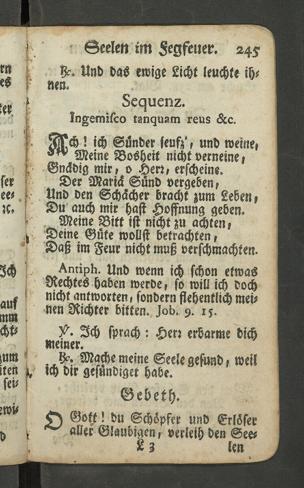 Seelen im Fegfeuer. 245
℟. Und das ewige Licht leuchte ih-
nen.
Sequenz.
Ingemiſco tanquam reus &c.
Ach! ich Sünder ſeufz', und weine,
Meine Bosheit nicht verneine,
Gnädig mir, o Herr, erſcheine.
Der Mariä Sünd vergeben,
Und den Schächer bracht zum Leben,
Du auch mir haſt Hoffnung geben.
Meine Bitt iſt nicht zu achten,
Deine Güte wollſt betrachten,
Daß im Feur nicht muß verſchmachten.
Antiph. Und wenn ich ſchon etwas
Rechtes haben werde, ſo will ich doch
nicht antworten, ſondern flehentlich mei-
nen Richter bitten. Job. 9. 15.
℣. Ich ſprach: Herr erbarme dich
meiner.
℟. Mache meine Seele geſund, weil
ich dir geſündiget habe.
Gebeth.
O Gott! du Schöpfer und Erlöſer
aller Glaubigen, verleih den See-
L 3 len